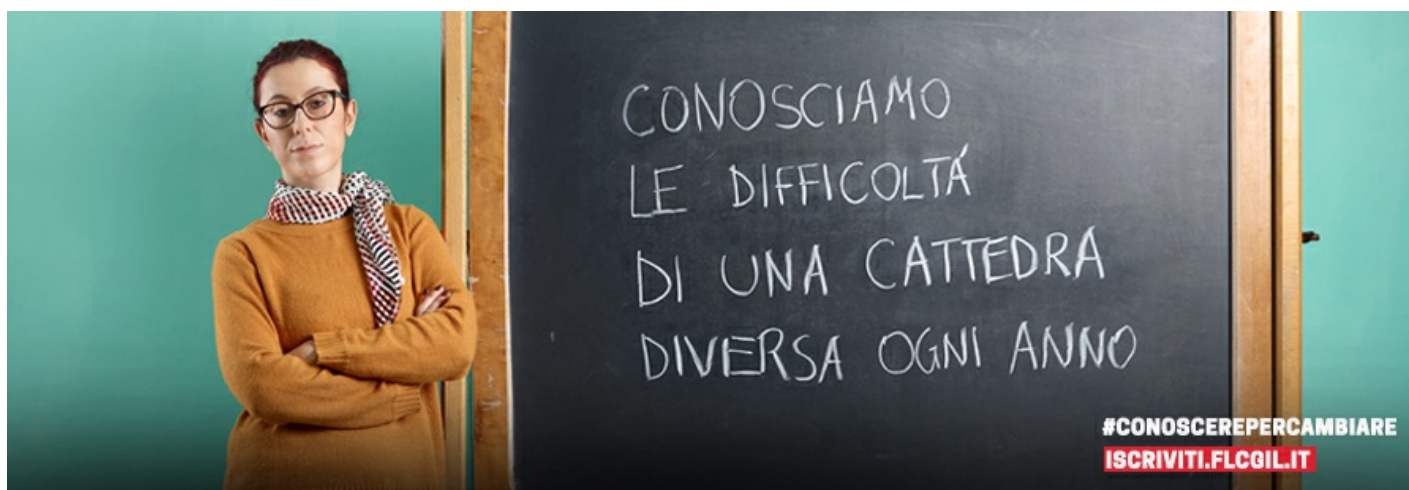 CONOSCIAMO
LE DIFFICOLTÁ
DI UNA CATTEDRA
DIVERSA OGNI ANNO
#CONOSCEREPERCAMBIARE
ISCRIVITI.FLCGIL.IT